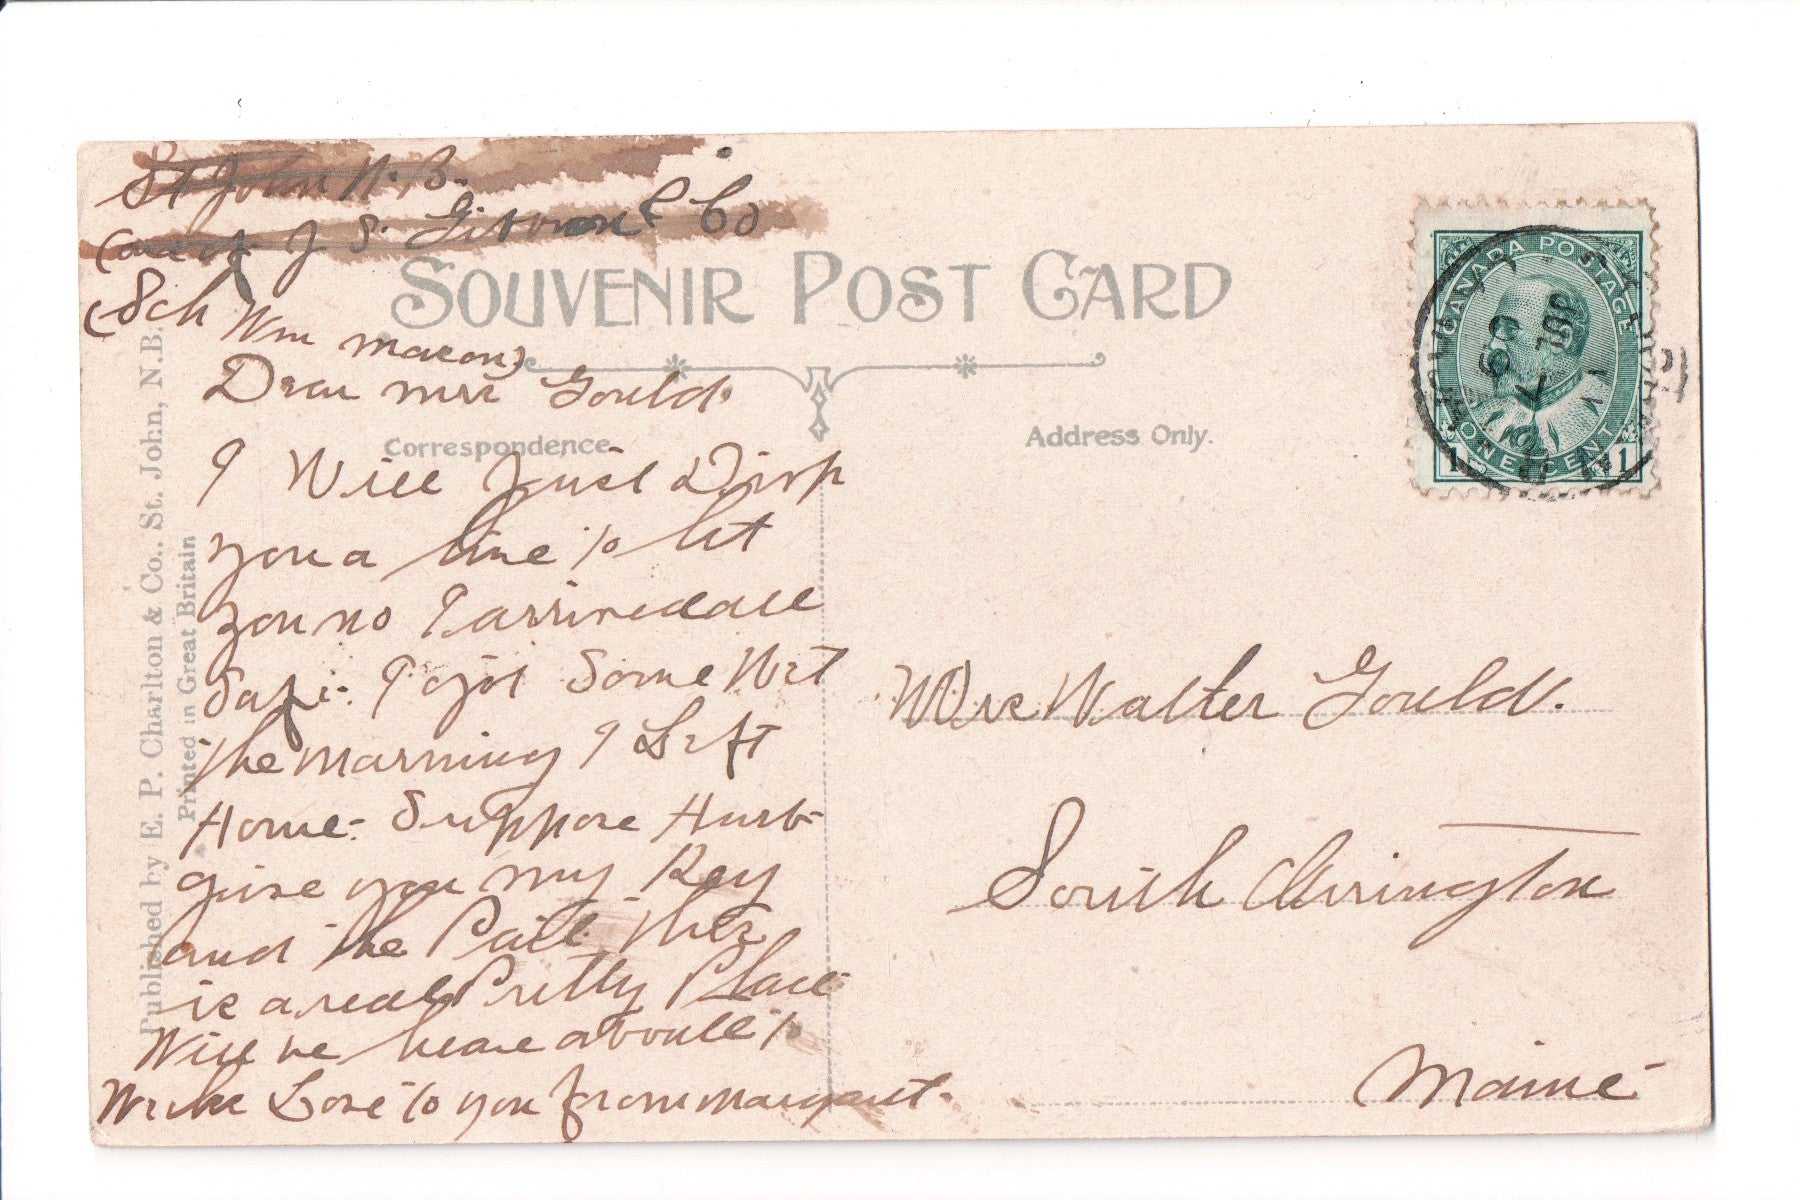 St John N.B.
Care of J S. Gibbon & Co
(Sch Wm Mason)
SOUVENIR POST CARD
Dear Mrs Gould.
Correspondence
Address Only.
I Will Just Drop
you a line to let
you no I arrived all
Safe. I got Some Wet
the Morning I Left
Home. Suppose Hurb-
give you my Key
and the Pail. this
is a real Pretty Place.
Will be here about
Week Love to you from Margaret.
Mrs Walter Gould.
South Orrington
Maine
Published by E. P. Charlton & Co., St. John, N.B.
Printed in Great Britain
CANADA POSTAGE
ONE CENT
1 1
JUL 7 09